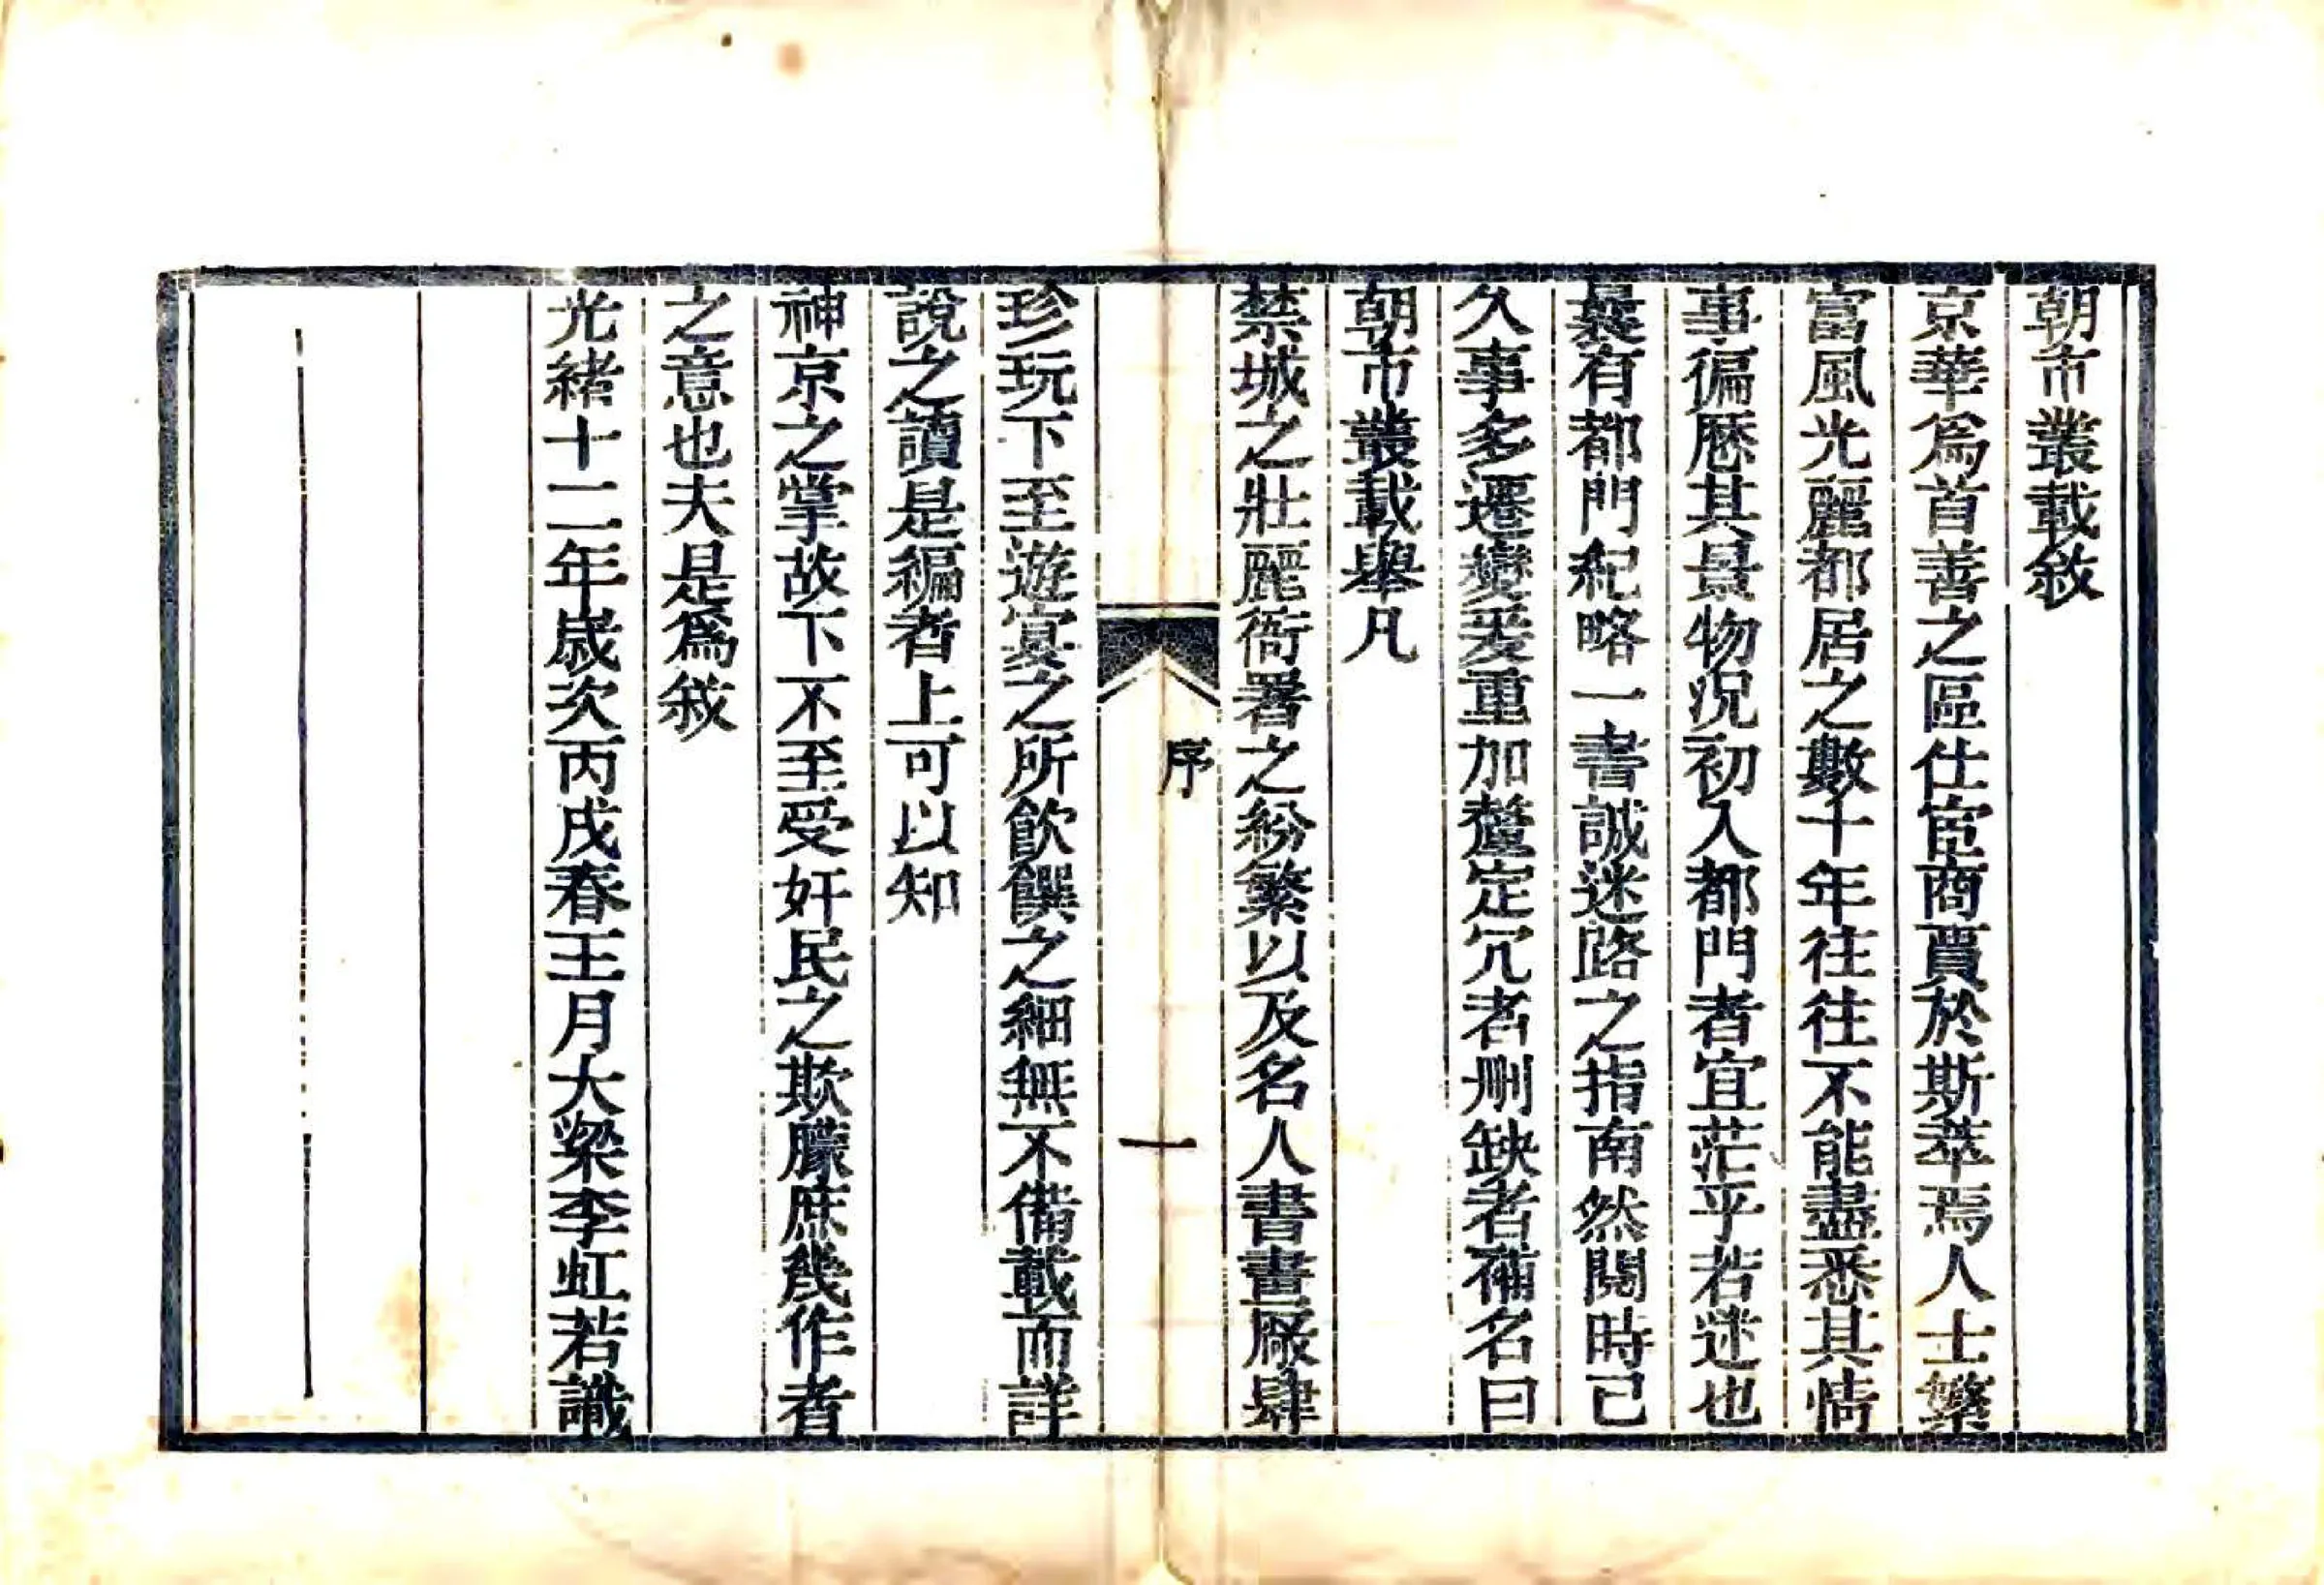 朝市叢載敘
京華爲首善之區仕宦商賈於斯萃焉人士繁
富風光麗都居之數十年往往不能盡悉其情
事徧歷其景物况初入都門者宜茫乎若迷也
曩有都門紀略一書誠迷路之指南然閱時已
久事多遷變爰重加釐定冗者刪缺者補名曰
朝市叢載舉凡
禁城之壯麗衙署之紛繁以及名人書畫厰肆
序
一
珍玩下至遊宴之所飮饌之細無不備載而詳
說之讀是編者上可以知
神京之掌故下不至受奸民之欺朦庶幾作者
之意也夫是爲敘
光緖十二年歲次丙戌春王月大梁李虹若識